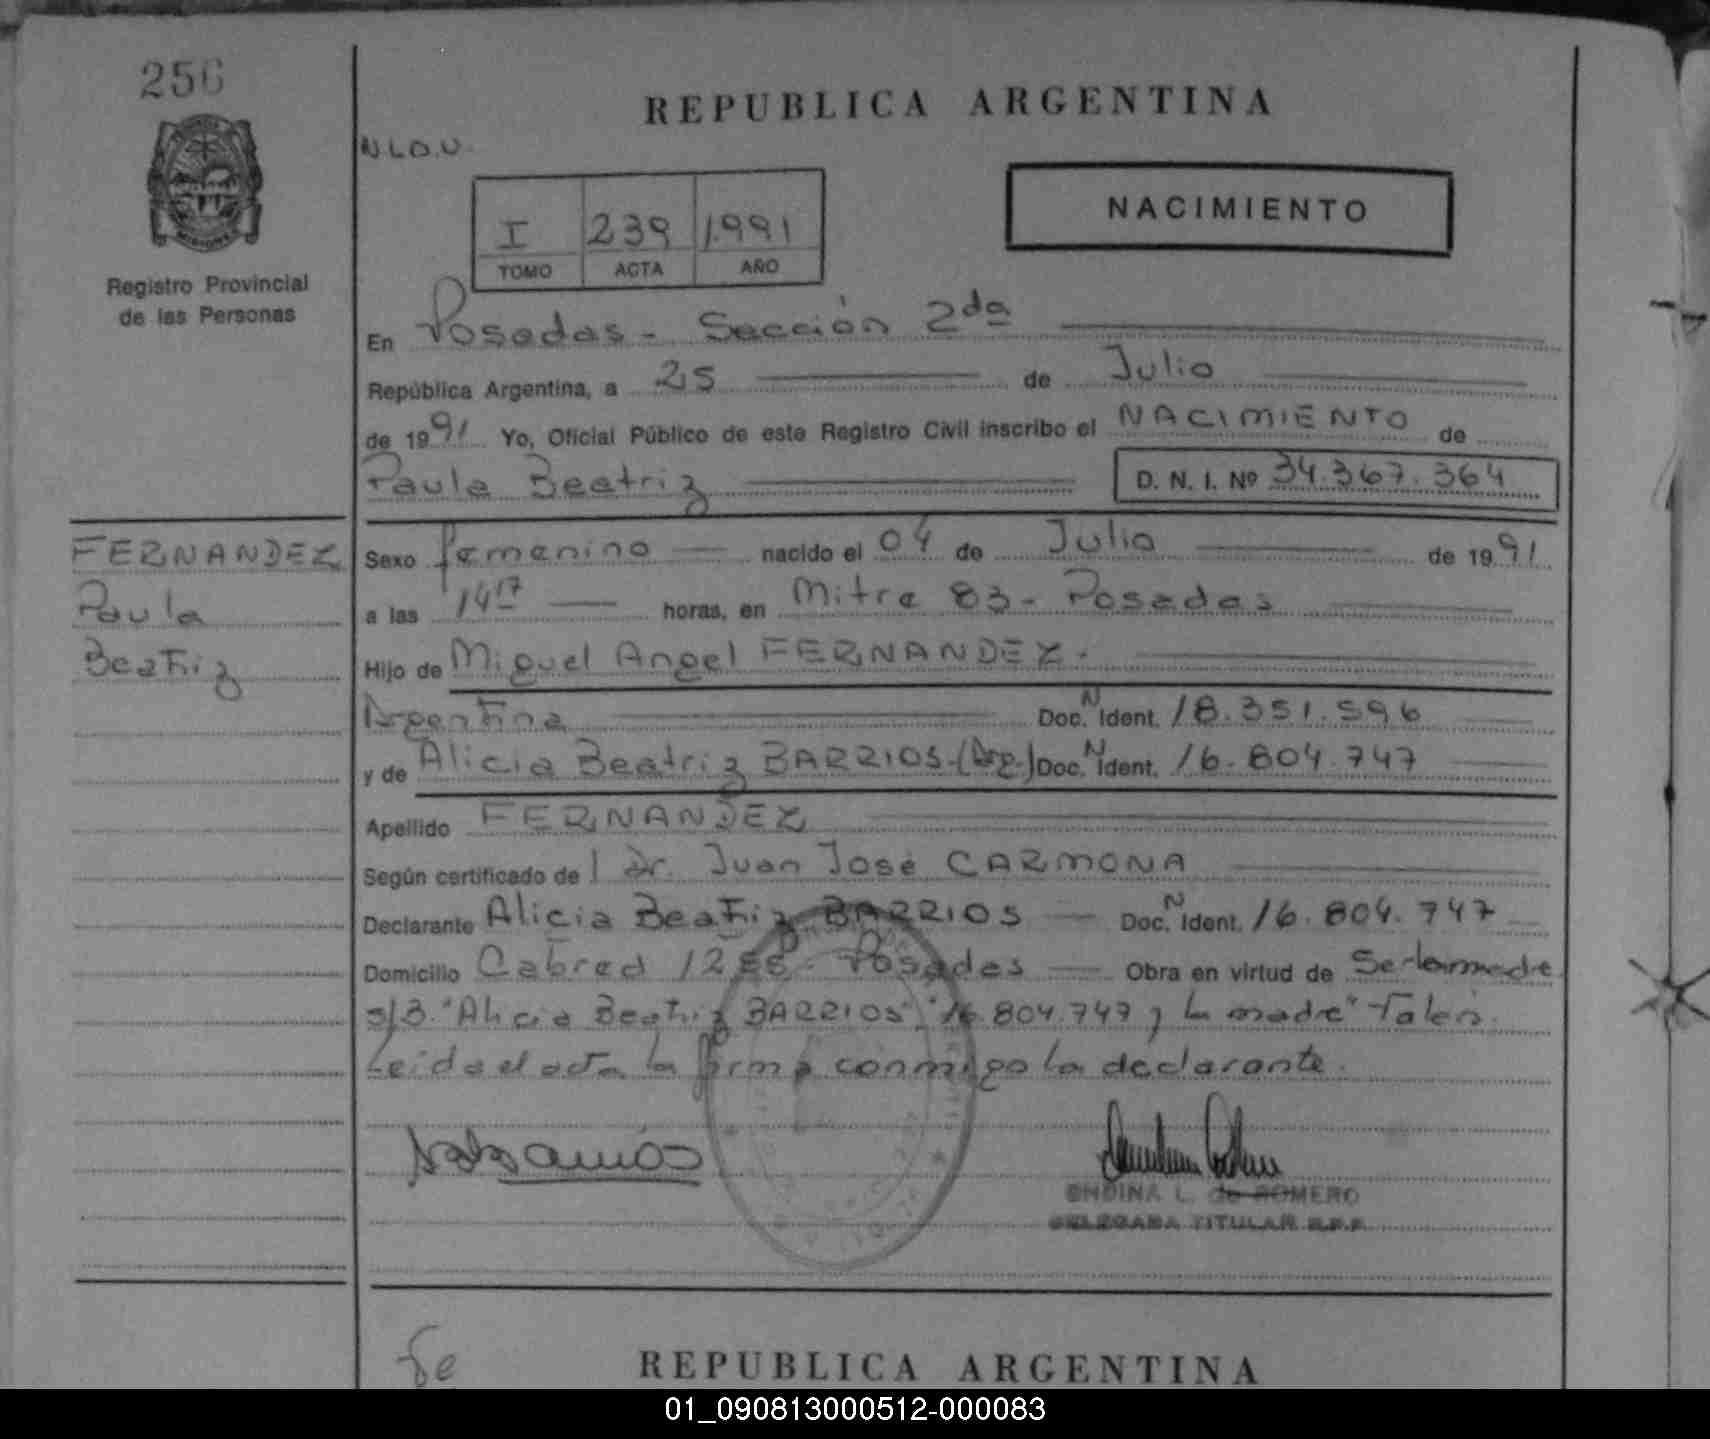 256
REPUBLICA ARGENTINA
N.L.O.U.
I 239 1.991
TOMO ACTA AÑO
NACIMIENTO
Registro Provincial
de las Personas
En Posadas - Sección 2da
República Argentina, a 25 de Julio
de 1991 Yo, Oficial Público de este Registro Civil inscribo el NACIMIENTO de
Paula Beatriz D. N. I. Nº 34.367.364
FERNANDEZ
Paula
Beatriz
Sexo femenino nacido el 04 de Julio de 1991
a las 14 17 horas, en Mitre 83 - Posadas
Hijo de Miguel Angel FERNANDEZ.-
Argentina Doc. N Ident. 18.351.596
y de Alicia Beatriz BARRIOS-(Arg.) Doc. N Ident. 16.804.747
Apellido FERNANDEZ
Según certificado del Dr. Juan José CARMONA
Declarante Alicia Beatriz BARRIOS Doc. N Ident. 16.804.747
Domicilio Cabred Posadas Obra en virtud de Ser la madre
s/B. "Alicia Beatriz BARRIOS", "16.804.747 y la madre" Valen.
Leida el acta la firma conmigo la declarante.
L. de ROMERO
DELEGADA TITULAR R.P.P.
REPUBLICA ARGENTINA
01_090813000512-000083